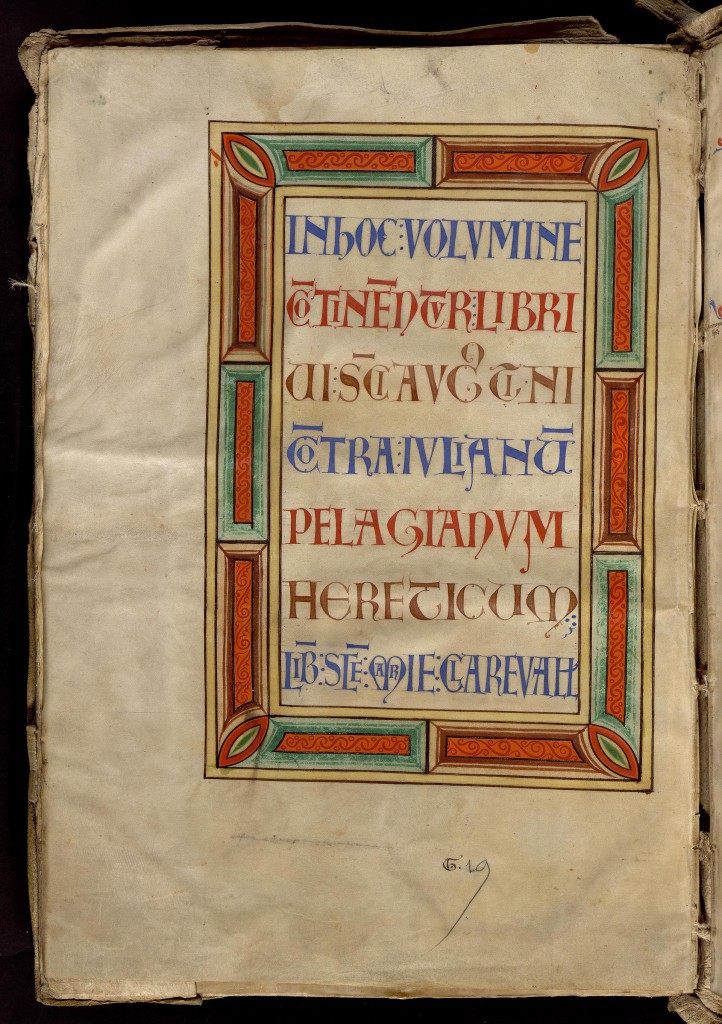 IN hOC : VOLVMINE
CŌTINĒNTVR : LIBRI
VI · SC̄I AVGᴼTI·NI
CŌTRA : IVLIANŪ
PELAGIANVM
HERETICVM
LIB̄ : SC̄E : MARIE : CLAREVALL
G. 19